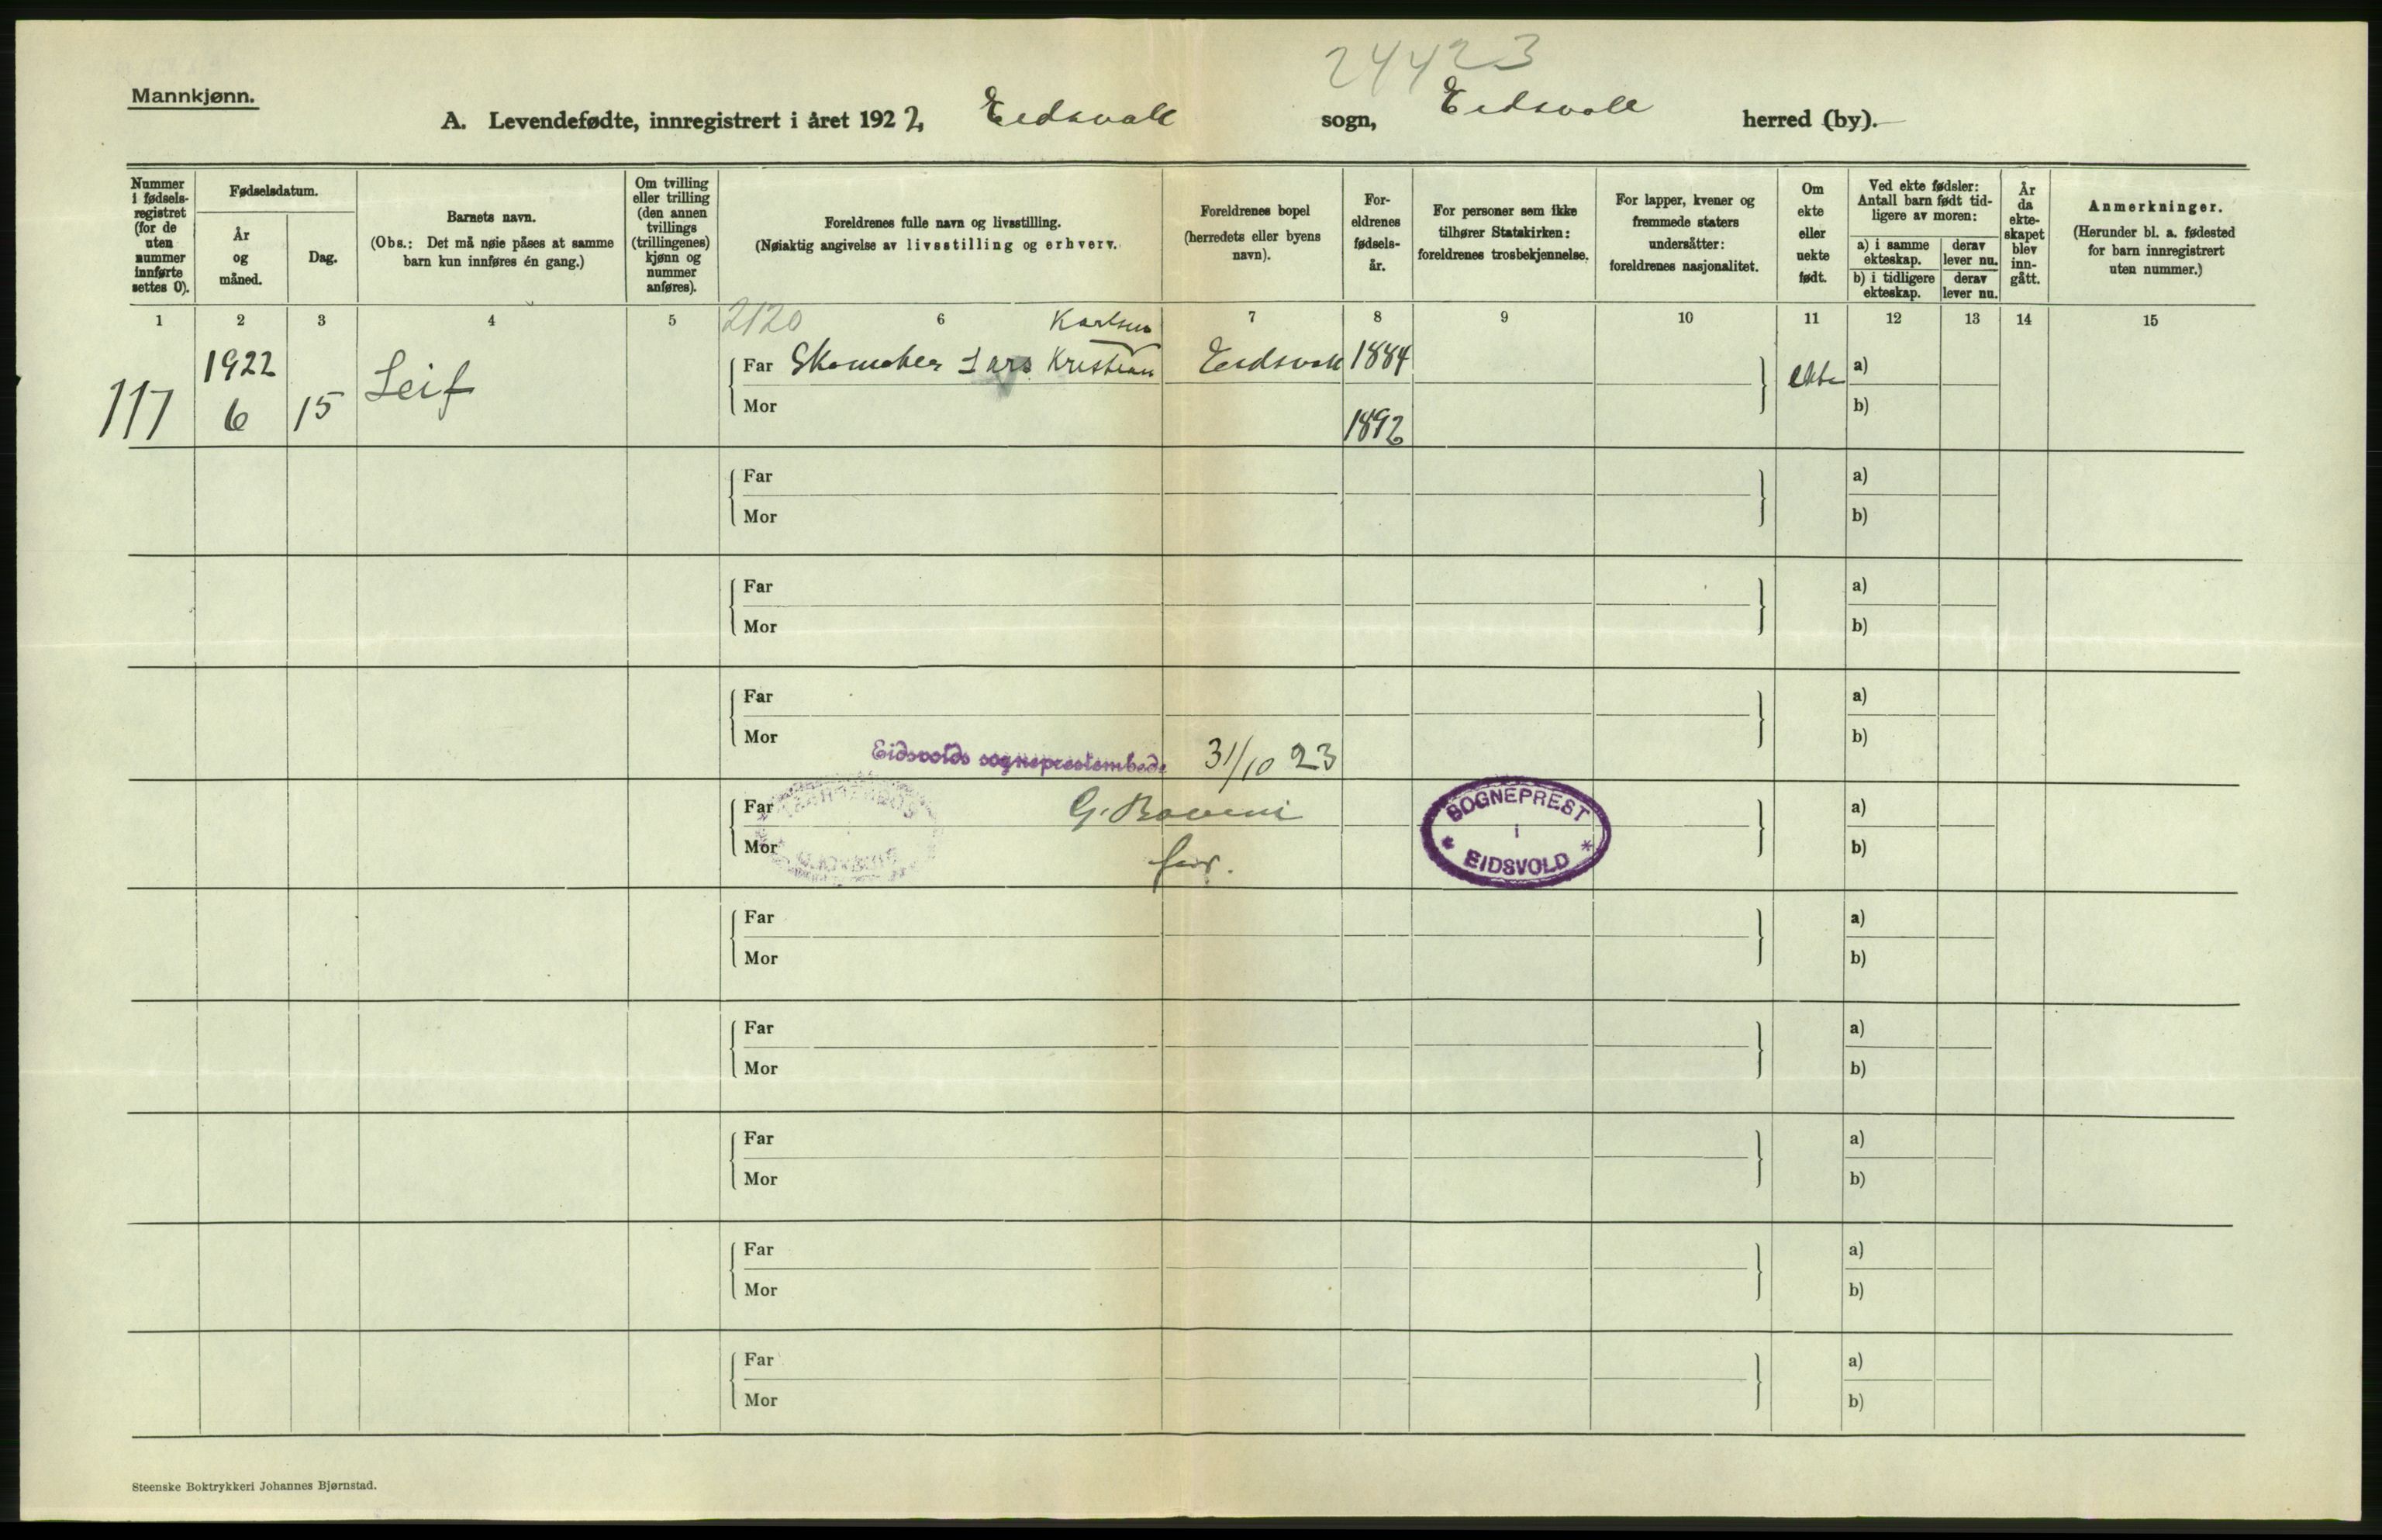 24423
Mannkjønn.
A. Levendefødte, innregistrert i året 1922, Eidsvoll sogn, Eidsvoll herred (by).
Nummer i fødsels-registret (for de uten nummer innførte settes 0).
Fødselsdatum.
År og måned.
Dag.
Barnets navn.
(Obs.: Det må nøie påses at samme barn kun innføres én gang.)
Om tvilling eller trilling (den annen tvillings (trillingenes) kjønn og nummer anføres).
Foreldrenes fulle navn og livsstilling.
(Nøiaktig angivelse av livsstilling og erhverv.)
Foreldrenes bopel (herredets eller byens navn).
For-eldrenes fødsels-år.
For personer som ikke tilhører Statskirken: foreldrenes trosbekjennelse.
For lapper, kvener og fremmede staters undersåtter: foreldrenes nasjonalitet.
Om ekte eller uekte født.
Ved ekte fødsler: Antall barn født tid-ligere av moren:
a) i samme ekteskap.
derav lever nu.
b) i tidligere ekteskap.
derav lever nu.
År da ekte-skapet blev inn-gått.
Anmerkninger.
(Herunder bl. a. fødested for barn innregistrert uten nummer.)
1 2 3 4 5 6 7 8 9 10 11 12 13 14 15
2120
Karlsen
117 1922 6 15 Leif Far Skomaker Lars Kristian Eidsvoll 1884 ekte a)
Mor 1892 b)
Far a)
Mor b)
Far a)
Mor b)
Far a)
Mor b)
Eidsvolds sogneprestembede 31/10 23
Far G. a)
Mor b)
SOGNEPREST
i
* EIDSVOLD *
Far a)
Mor b)
Far a)
Mor b)
Far a)
Mor b)
Far a)
Mor b)
Far a)
Mor b)
Steenske Boktrykkeri Johannes Bjørnstad.